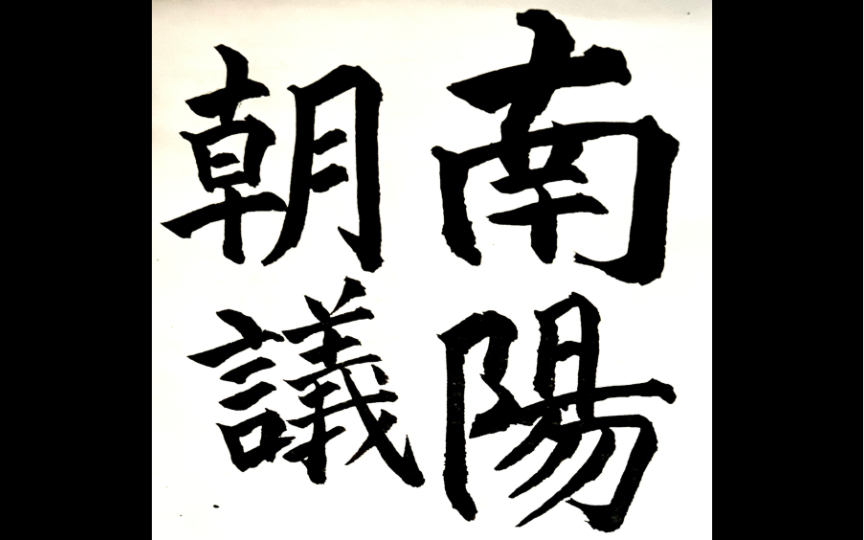 南陽
朝議